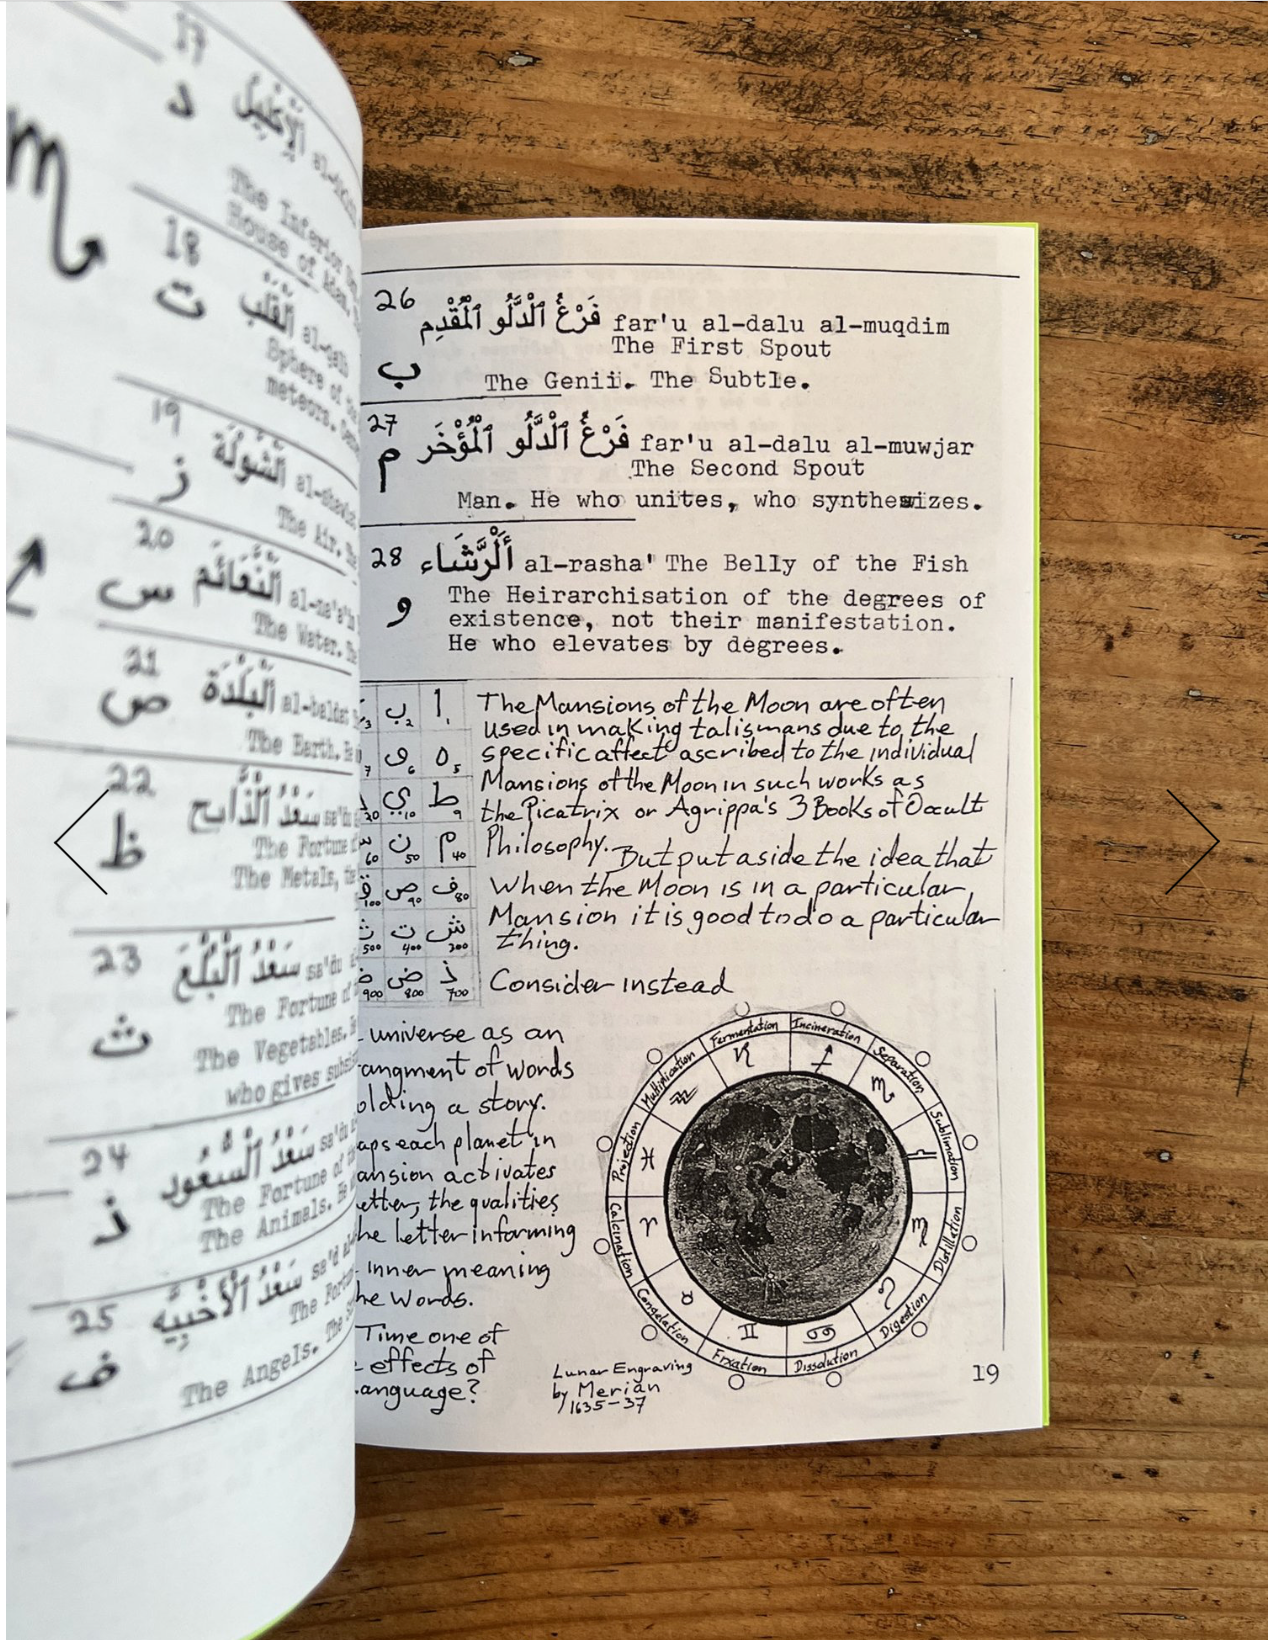 17
د
الْإِكْلِيلُ
The Inferior
House of
18
ت
الْقَلْبُ al-qalb
Sphere of
meteors.
19
ز
الْشَّوْلَة al-shawla
The Air.
20
س
الْنَّعَائَم al-na'a'im
The Water. The
21
ص
الْبَلْدَة al-baldat
The Earth. He
22
ظ
سَعْدُ الْذَّابِح sa'du
The Fortune
The Metals, the
23
ث
سَعْدُ الْبُلَع sa'du
The Fortune of
The Vegetables. He
who gives
24
ذ
سَعْدُ الْسُّعُود sa'du
The Fortune of the
The Animals. He
25
ف
سَعْدُ الْأَخْبِيَّه sa'd
The
The Angels. The
26 فَرْغُ الْدَّلُو الْمُقْدِم far'u al-dalu al-muqdim
The First Spout
ب The Genii. The Subtle.
27 فَرْغُ الْدَّلُو الْمُؤْخَر far'u al-dalu al-muwjar
م The Second Spout
Man. He who unites, who synthesizes.
28 أَلْرَّشَاء al-rasha' The Belly of the Fish
و The Heirarchisation of the degrees of
existence, not their manifestation.
He who elevates by degrees.
ب 2 ا 1
7 و 6 ه 5
20 ي 10 ط 9
60 ن 50 م 40
ق 100 ص 90 ف 80
500 ت 400 ش 300
900 ض 800 ذ 700
The Mansions of the Moon are often
used in making talismans due to the
specific affect ascribed to the individual
Mansions of the Moon in such works as
the Picatrix or Agrippa's 3 Books of Occult
Philosophy. But put aside the idea that
when the Moon is in a particular
Mansion it is good to do a particular
thing.
Consider instead
universe as an
angment of words
olding a story.
aps each planet in
ansion activates
etter, the qualities
he letter informing
inner meaning
he words.
Time one of
effects of
anguage?
Fermentation
Incineration
Separation
Sublimation
Distillation
Digestion
Dissolution
Fixation
Congelation
Calcination
Projection
Multiplication
♑ ♐ ♏ ♎ ♍ ♌ ♋ ♊ ♉ ♈ ♓ ♒
Lunar Engraving
by Merian
1635-37
19